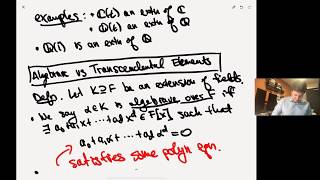 examples: • ℂ(t) an extn of ℂ
• ℚ(t) an extn of ℚ
• ℚ(i) is an extn of ℚ
Algebraic vs Transcendental Elements
Defns. Let K ⊇ F be an extension of fields.
• We say α ∈ K is algebraic over F iff
∃ a₀+a₁x+⋯+a_d x^d ∈ F[x] such that
a₀+a₁α+⋯+a_d α^d = 0
satisfies some polyn eqn.